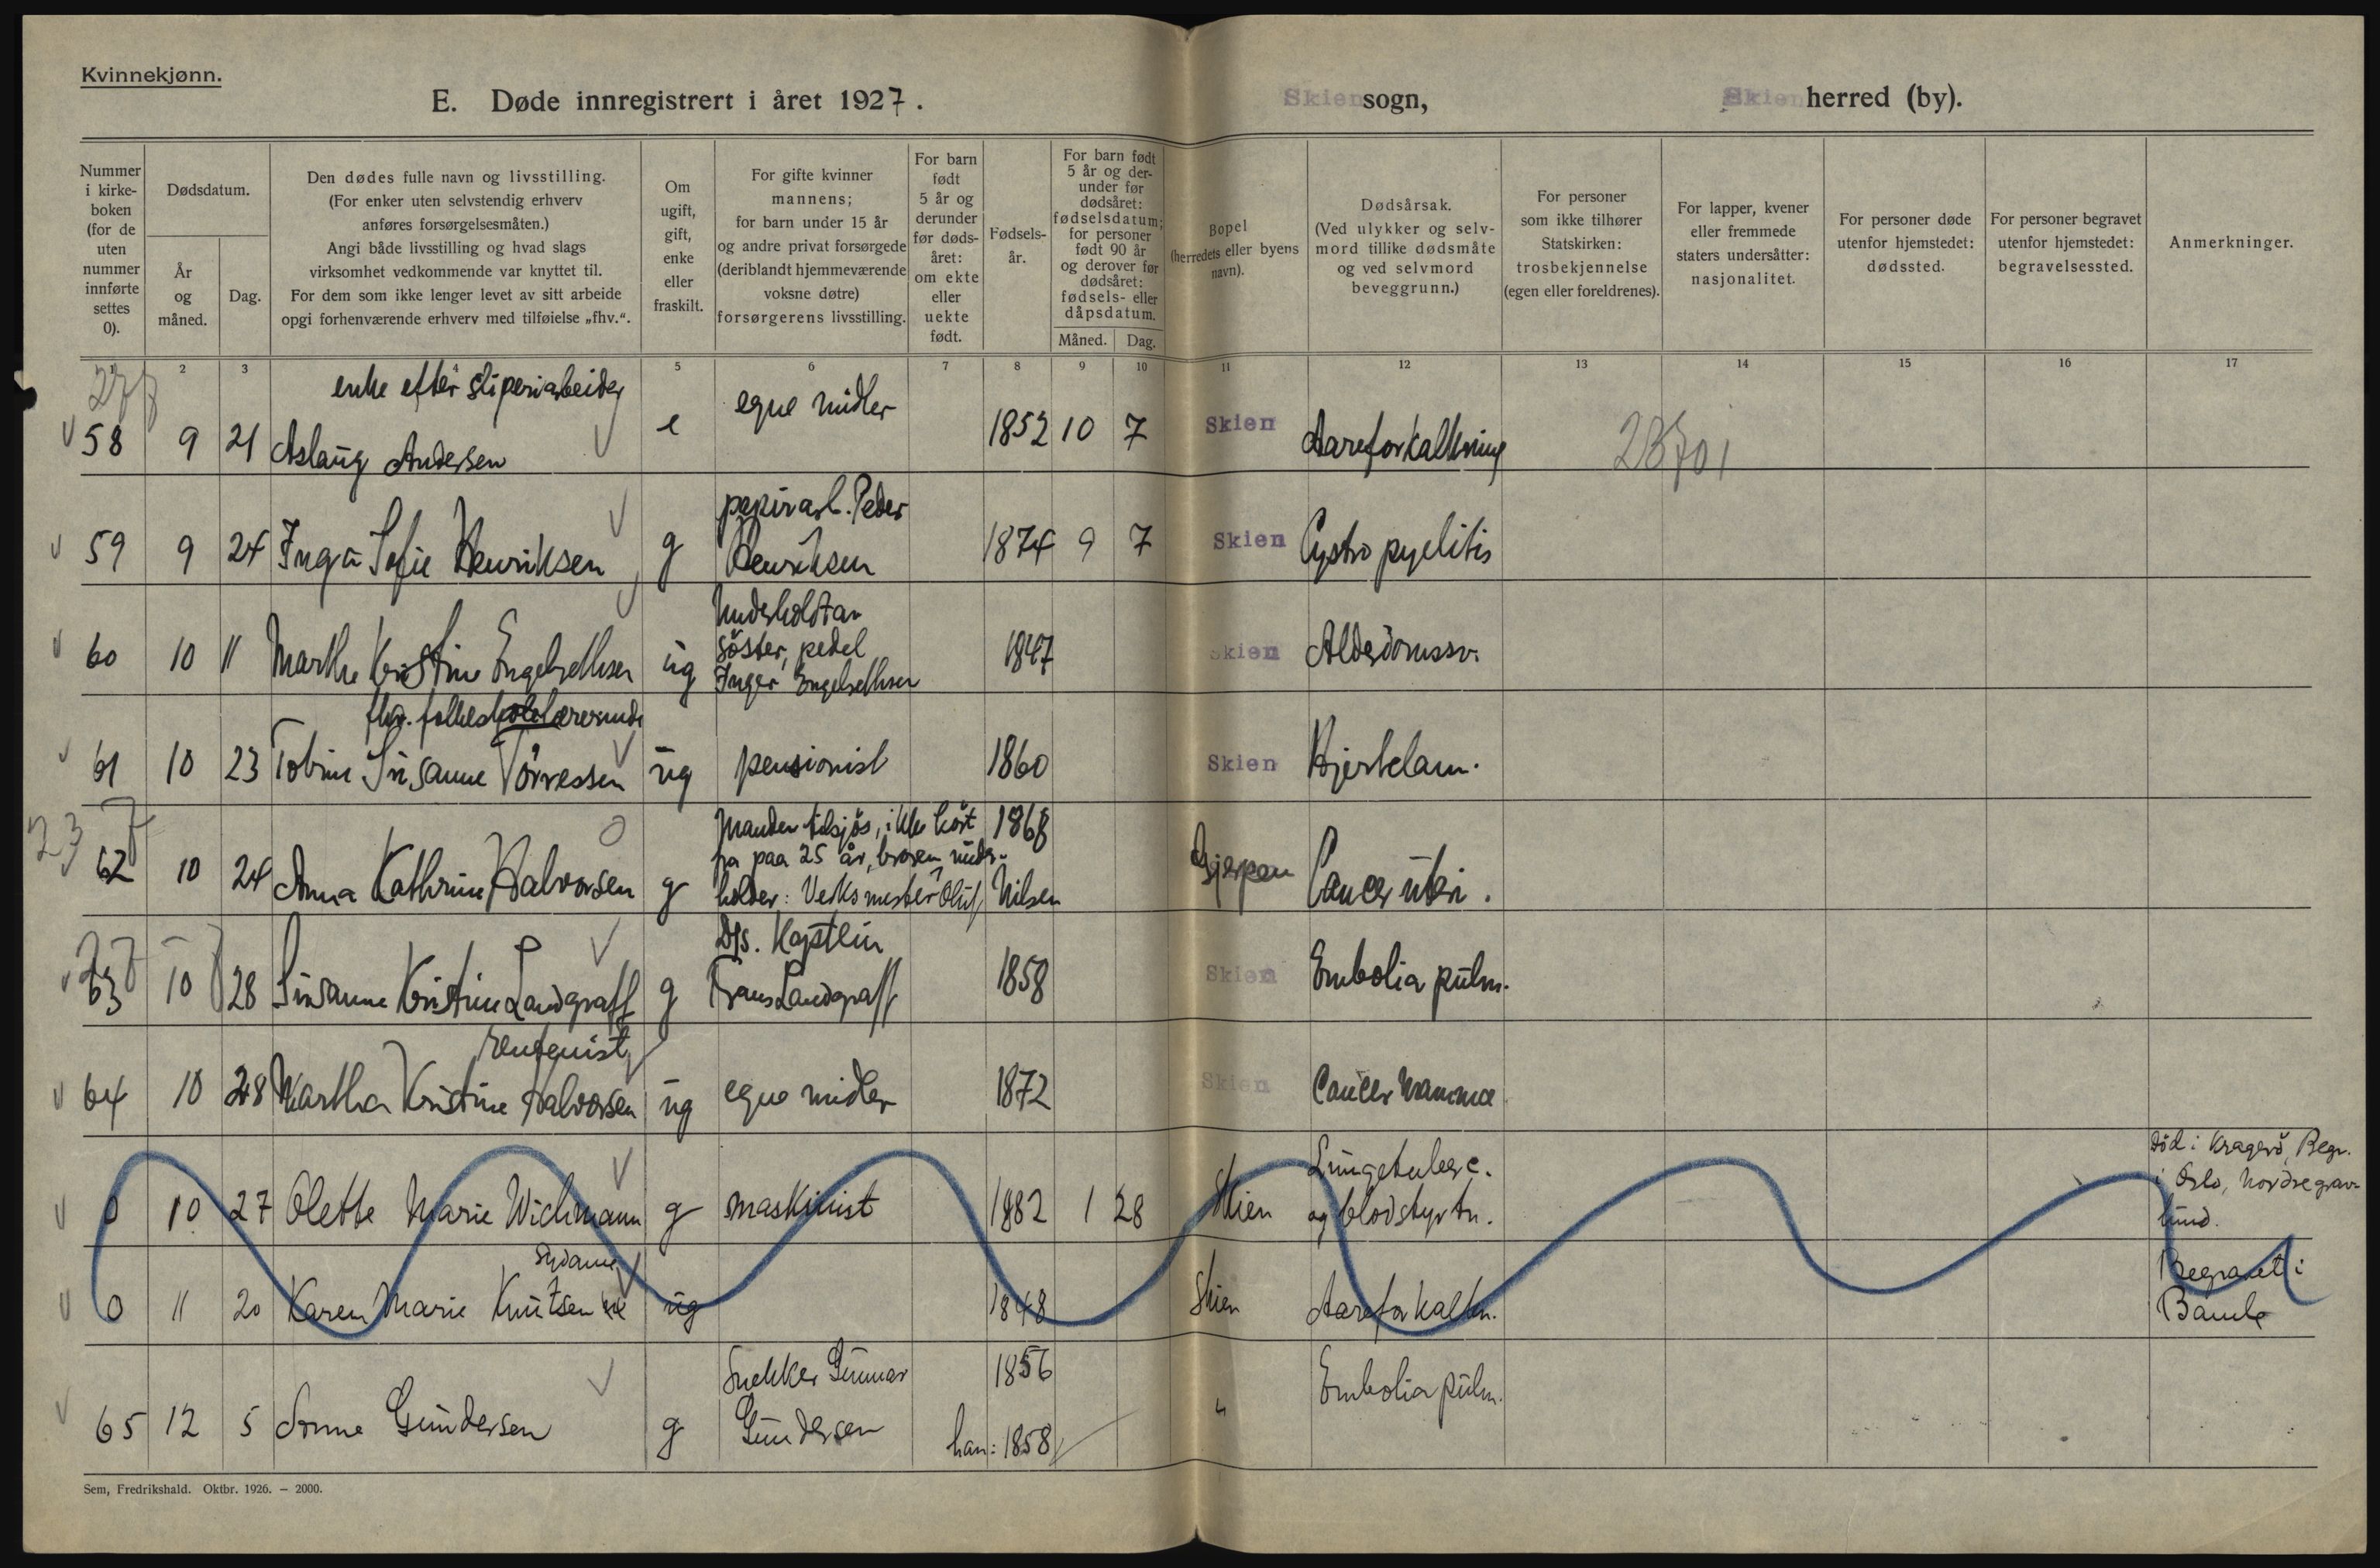 Kvinnekjønn.
E. Døde innregistrert i året 1927.
Skien sogn, Skien herred (by).
Nummer i kirke- boken (for de uten nummer innførte settes 0).
Dødsdatum.
År og måned.
Dag.
Den dødes fulle navn og livsstilling.
(For enker uten selvstendig erhverv
anføres forsørgelsesmåten.)
Angi både livsstilling og hvad slags
virksomhet vedkommende var knyttet til.
For dem som ikke lenger levet av sitt arbeide
opgi forhenværende erhverv med tilføielse „fhv.“.
Om ugift, gift, enke eller fraskilt.
For gifte kvinner
mannens;
for barn under 15 år
og andre privat forsørgede
(deriblandt hjemmeværende
voksne døtre)
forsørgerens livsstilling.
For barn født 5 år og derunder før døds- året: om ekte eller uekte født.
Fødsels- år.
For barn født 5 år og der- under før dødsåret: fødselsdatum; for personer født 90 år og derover før dødsåret: fødsels- eller dåpsdatum.
Måned. Dag.
Bopel
(herredets eller byens
navn).
Dødsårsak.
(Ved ulykker og selv-
mord tillike dødsmåte
og ved selvmord
beveggrunn.)
For personer
som ikke tilhører
Statskirken:
trosbekjennelse
(egen eller foreldrenes).
For lapper, kvener
eller fremmede
staters undersåtter:
nasjonalitet.
For personer døde
utenfor hjemstedet:
dødssted.
For personer begravet
utenfor hjemstedet:
begravelsessted.
Anmerkninger.
1 2 3 4 5 6 7 8 9 10 11 12 13 14 15 16 17
enke efter sliperiarbeider
58 9 21 Aslaug Andersen e egne midler 1852 10 7 Skien Aareforkalkning
papirarb. Peder
59 9 24 Inga Sofie Henriksen g Henriksen 1874 9 7 Skien Cystro pyelitis
Underholdt av
søster, pedel
60 10 11 Marthe Kristine Engelsethsen ug Inger Engelsethsen 1847 Skien Alderdomssv.
fhv. folkeskolelærerinde
61 10 23 Tobine Susanne Tørressen ug pensionist 1860 Skien Hjertelam.
237
Manden tilsjøs, ikke hørt 1868
fra paa 25 år, broren under-
62 10 24 Anna Kathrine Halvorsen g holder: Verksmester Oluf Nilsen Gjerpen Cancer uteri.
Dfs. Kaptein
63 10 28 Susanne Kristine Landgraff g Frans Landgraff 1858 Skien Embolia pulm.
rentenist
64 10 28 Martha Kristine Halvorsen ug egne midler 1872 Skien Cancer mamma
0 10 27 Olette Marie Wichmann g maskinist 1882 1 28 Skien Lungetuberc.
og blodstyrtn.
død i Kragerø, Begr.
i Oslo, Nordre grav-
lund.
0 11 20 Karen Marie Knutsen ug 1848 Skien Aareforkalkn.
Begravet i
Bamle
Snekker Gunnar 1856
65 12 5 Anne Gundersen g Gundersen han: 1858 " Embolia pulm.
Sem, Fredrikshald. Oktbr. 1926. — 2000.